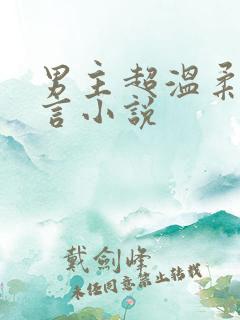 男主超溫柔
言小說
戴劍峰
未任同意禁止转载